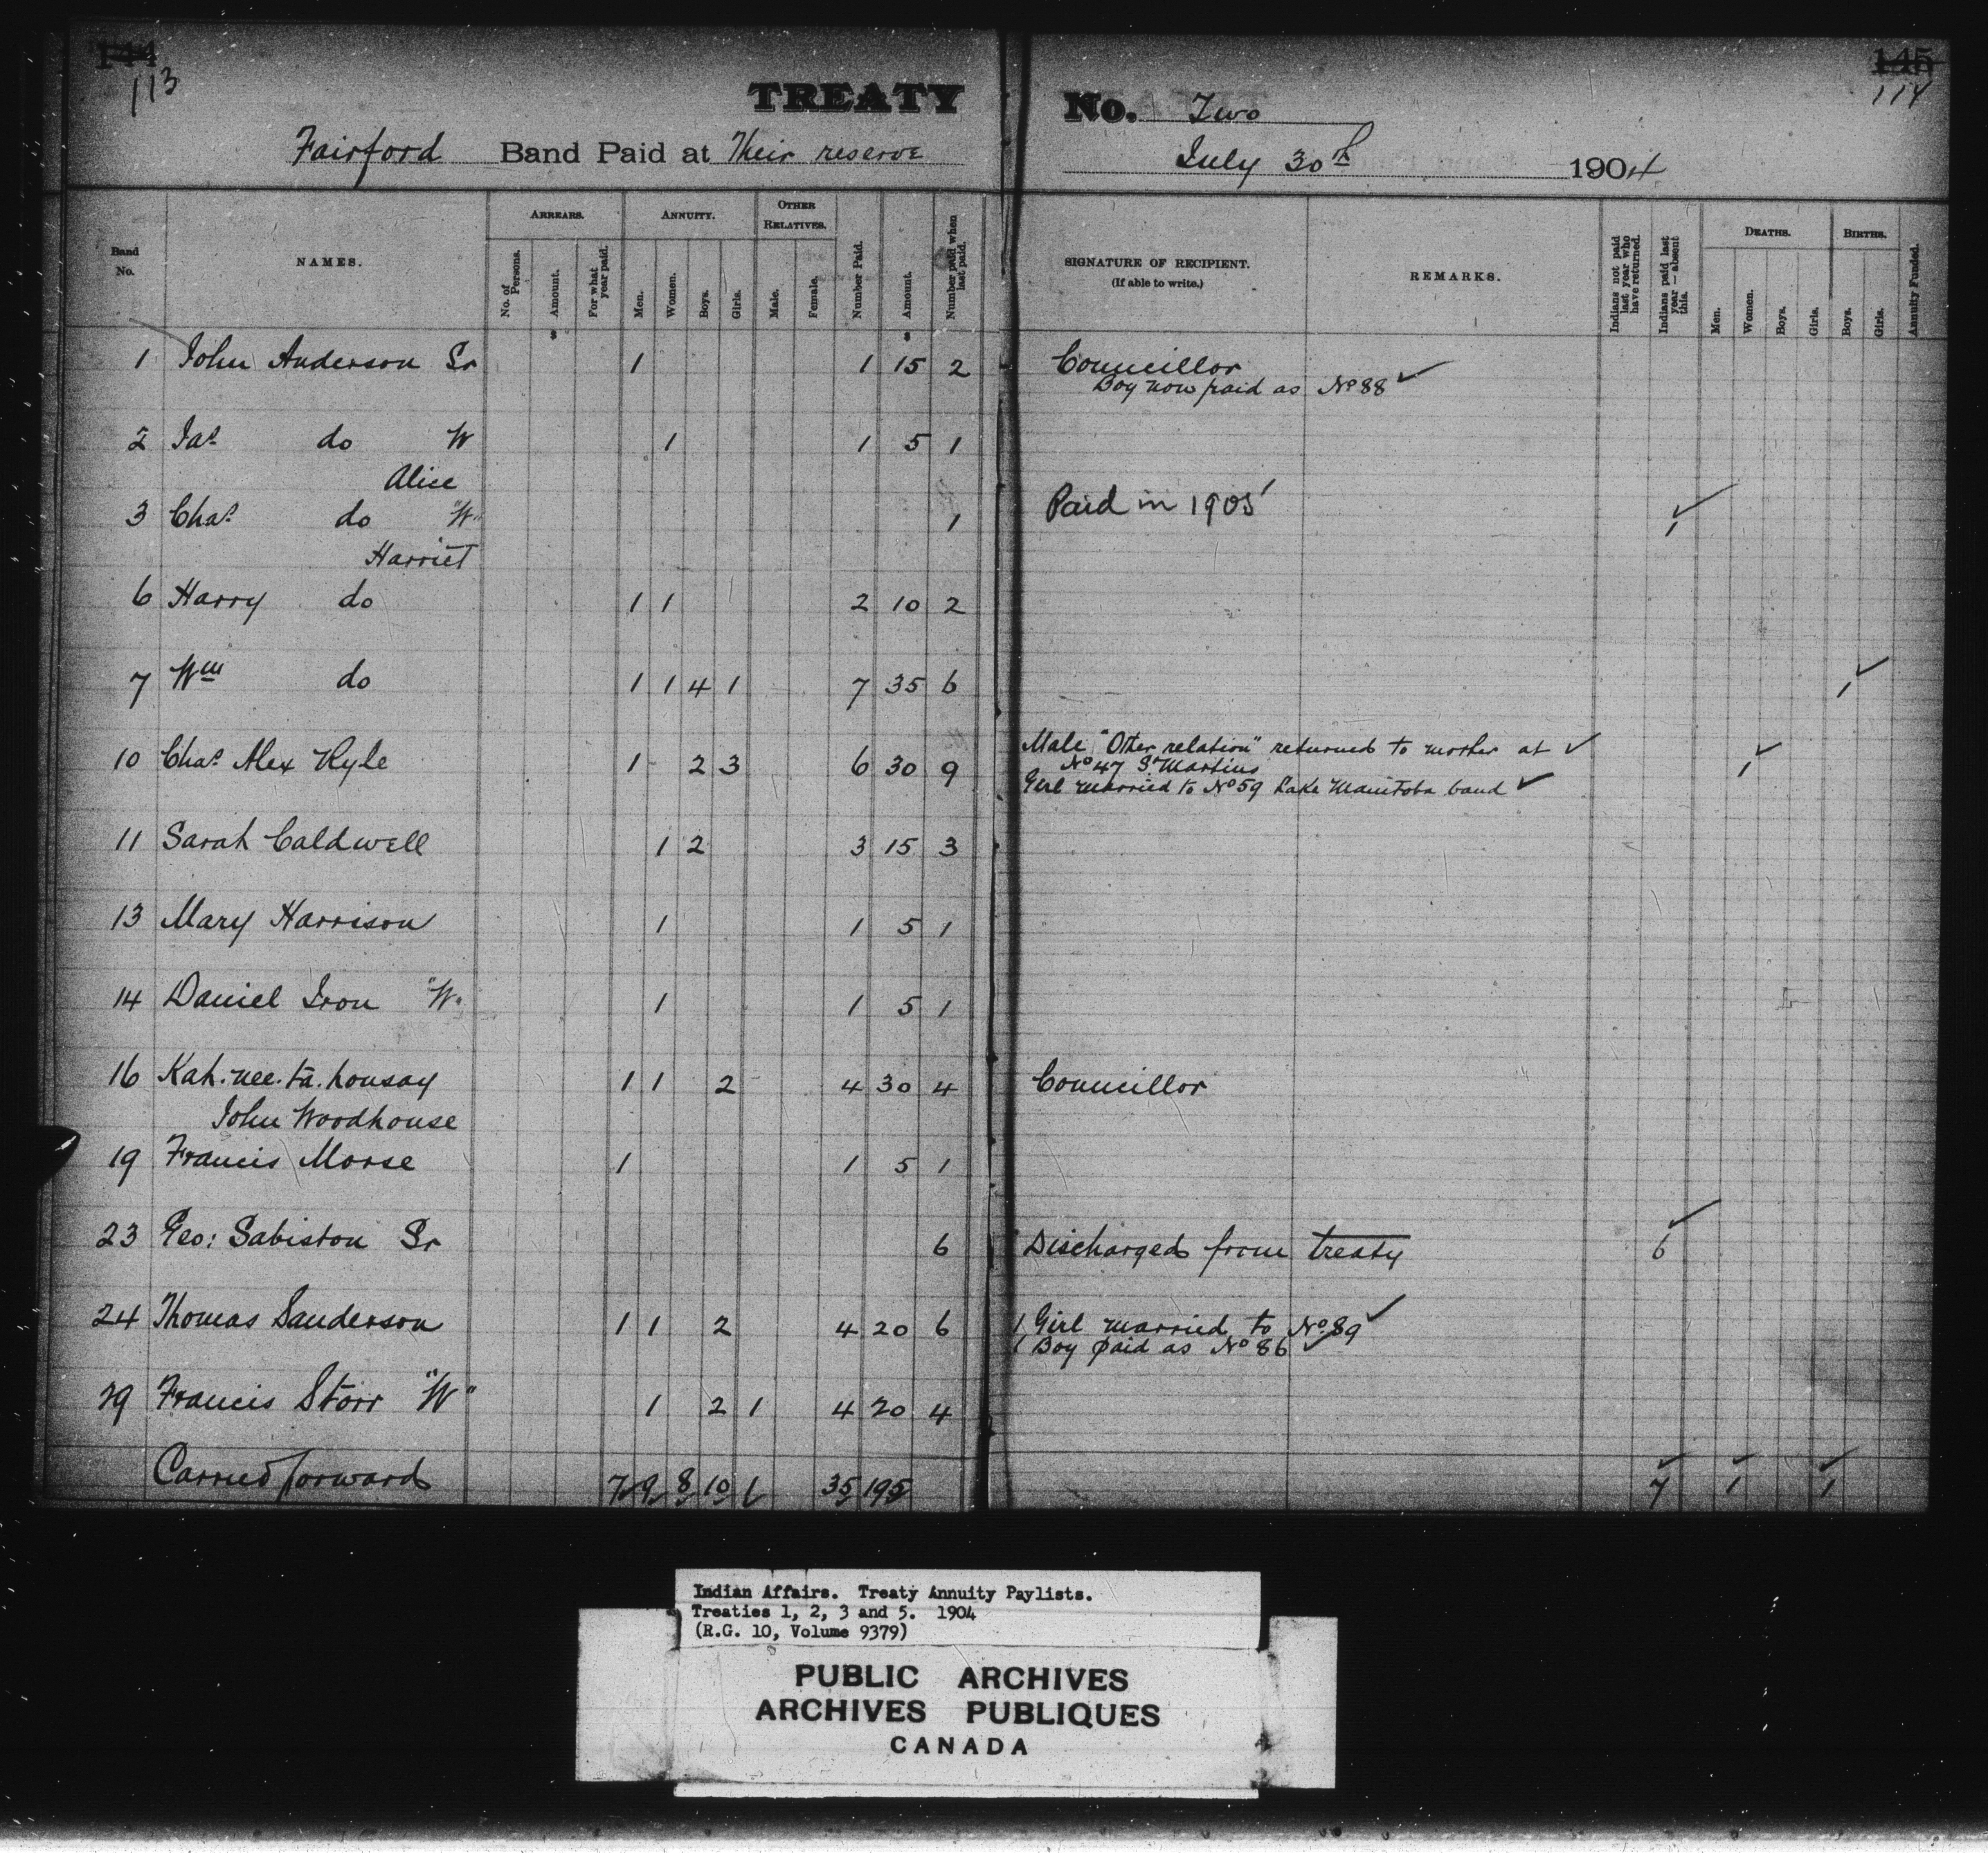 144 145
113 114
TREATY No. Two
Fairford Band Paid at Their reserve July 30th 1904
Band No. NAMES. ARREARS. No. of Persons. Amount. For what year paid. ANNUITY. Men. Women. Boys. Girls. OTHER RELATIVES. Male. Female. Number Paid. Amount. Number paid when last paid. SIGNATURE OF RECIPIENT. (If able to write.) REMARKS. Indians not paid last year who have returned. Indians paid last year — absent this. DEATHS. Men. Women. Boys. Girls. BIRTHS. Boys. Girls. Annuity Funded.
$ $
1 John Anderson Sr 1 1 15 2 Councillor
Boy now paid as No 88 ✓
2 Jas do W 1 1 5 1
Alice
3 Chas do "W" 1 Paid in 1905 ✓ 1
Harriet
6 Harry do 1 1 2 10 2
7 Wm do 1 1 4 1 7 35 6 1 ✓
10 Chas Alex Kyle 1 2 3 6 30 9 Male "Other relation" returned to mother at ✓ 1 ✓
No 47 St Martins
Girl married to No 59 Lake Manitoba band ✓
11 Sarah Caldwell 1 2 3 15 3
13 Mary Harrison 1 1 5 1
14 Daniel Iron "W" 1 1 5 1
16 Kah.nee.ta.housay 1 1 2 4 30 4 Councillor
John Woodhouse
19 Francis Morse 1 1 5 1
23 Geo: Sabiston Sr 6 Discharged from treaty 6 ✓
24 Thomas Sanderson 1 1 2 4 20 6 1 Girl married to No 89 ✓
1 Boy paid as No 86 ✓
29 Francis Storr "W" 1 2 1 4 20 4
Carried forward 7 9 8 10 1 35 195 7 ✓ 1 ✓ 1 ✓
Indian Affairs. Treaty Annuity Paylists.
Treaties 1, 2, 3 and 5. 1904
(R.G. 10, Volume 9379)
PUBLIC ARCHIVES
ARCHIVES PUBLIQUES
CANADA